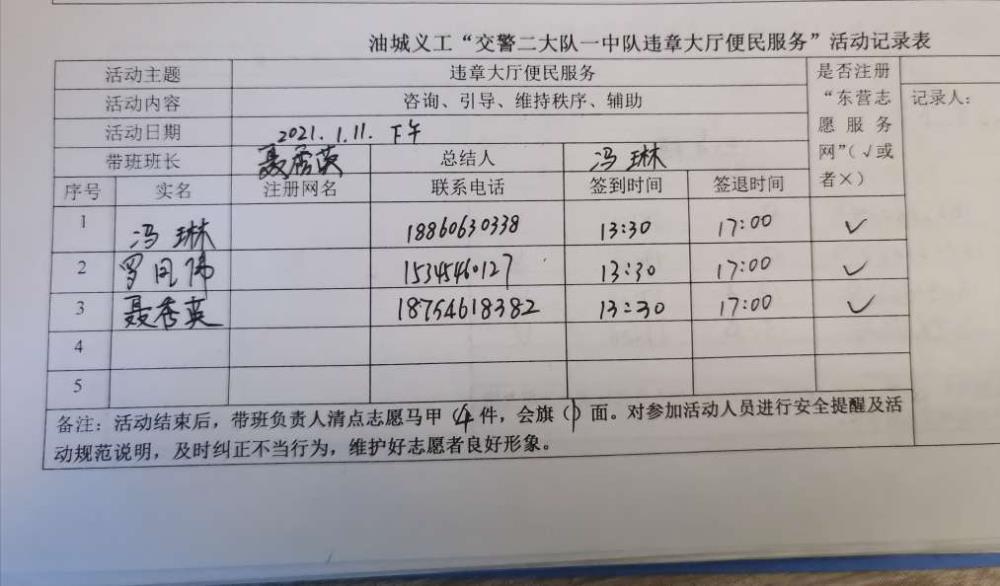 油城义工“交警二大队一中队违章大厅便民服务”活动记录表
活动主题 违章大厅便民服务 是否注册“东营志愿服务网”(√或者×)
活动内容 咨询、引导、维持秩序、辅助 记录人：
活动日期 2021.1.11. 下午
带班班长 聂秀英 总结人 冯琳
序号 实名 注册网名 联系电话 签到时间 签退时间
1 冯琳 18860630338 13:30 17:00 ✓
2 罗凤伟 15345460127 13:30 17:00 ✓
3 聂秀英 18754618382 13:30 17:00 ✓
4
5
备注：活动结束后，带班负责人清点志愿马甲（4件，会旗（1）面。对参加活动人员进行安全提醒及活
动规范说明，及时纠正不当行为，维护好志愿者良好形象。